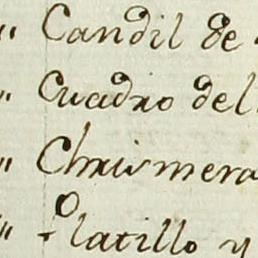 " Candil de
" Cuadro del
" Chrismera
" Platillo y